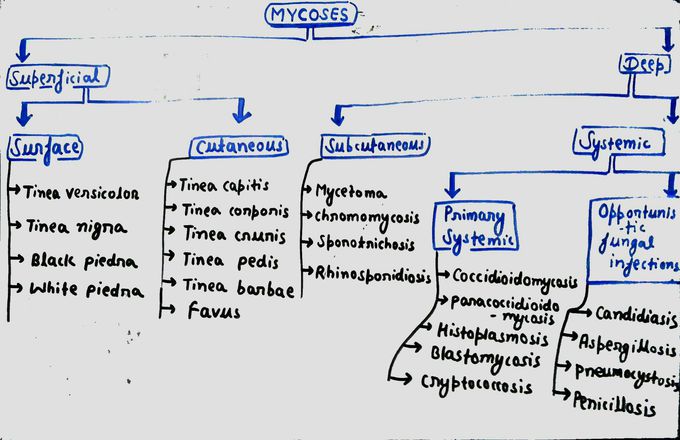 MYCOSES
Superficial
Deep
Surface
Cutaneous
Subcutaneous
Systemic
Tinea versicolor
Tinea nigra
Black piedra
White piedra
Tinea capitis
Tinea corporis
Tinea cruris
Tinea pedis
Tinea barbae
Favus
Mycetoma
chromomycosis
Sporotrichosis
Rhinosporidiosis
Primary
Systemic
Opportunis
tic
fungal
infections
Coccidioidomycosis
paracoccidioido
-mycosis
Histoplasmosis
Blastomycosis
Cryptococcosis
Candidiasis
Aspergillosis
pneumocystosis
Penicillosis